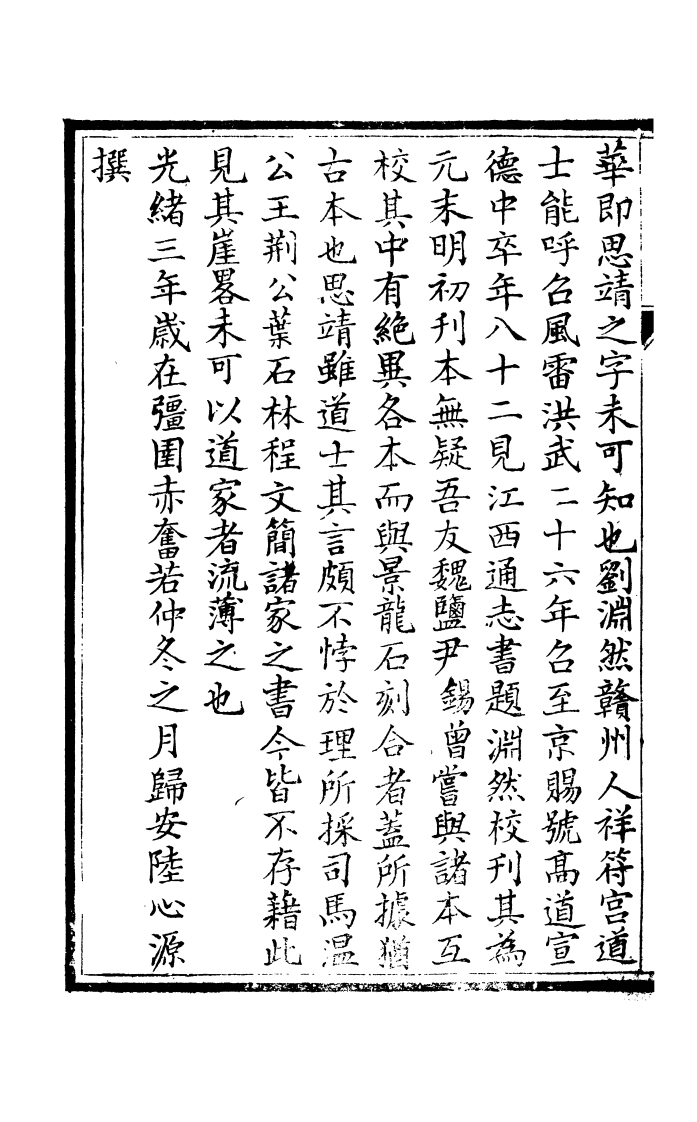 華即思靖之字未可知也劉淵然贛州人祥符宮道
士能呼召風雷洪武二十六年召至京賜號高道宣
德中卒年八十二見江西通志書題淵然校刊其為
元末明初刊本無疑吾友魏鹽尹錫曾嘗與諸本互
校其中有絶異各本而與景龍石刻合者蓋所據猶
古本也思靖雖道士其言頗不悖於理所採司馬溫
公王荆公葉石林程文簡諸家之書今皆不存藉此
見其崖畧未可以道家者流薄之也
光緒三年歲在彊圉赤奮若仲冬之月歸安陸心源
撰